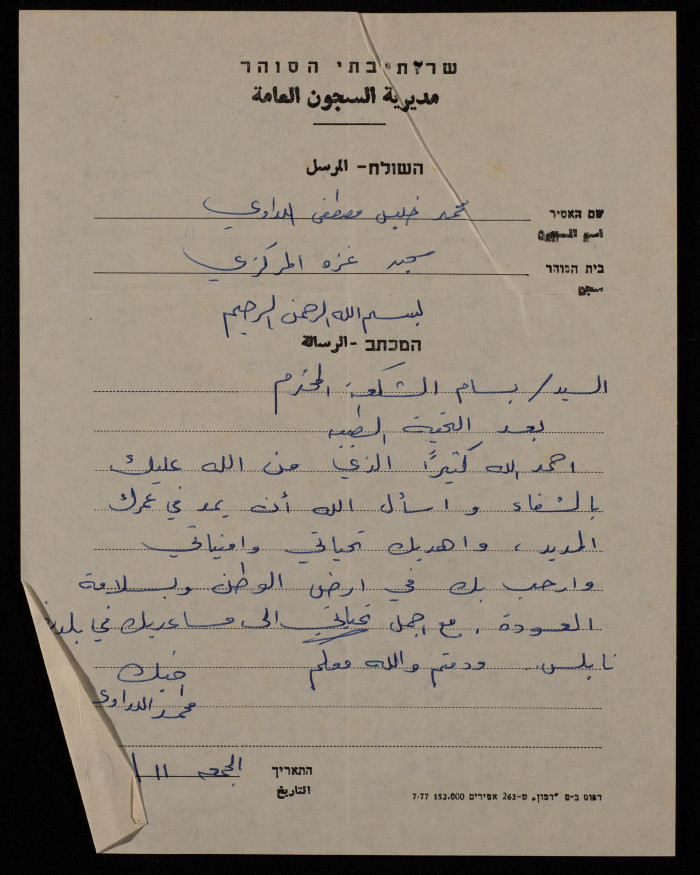 שרות בתי הסוהר
مديرية السجون العامة
השולח - المرسل
שם האסיר محمد خليل مصطفى
اسم
בית הסוהר سجن غزه المركزي
سجن
بسم الله الرحمن الرحيم
המכתב - الرسالة
السيد / بسام الشكعة المحترم
بعد التحية الطيبه
احمد الله كثيرًا الذي من الله عليك
بالشفاء و اسأل الله أن يمد في عمرك
المديد ، واهديك تحياتي وامنياتي
وارحب بك في ارض الوطن وبسلامة
العودة ، مع اجمل تحياتي الى مساعديك في
نابلس .. ودمتم والله معكم
محمد
התאריך الجمعه 11
التاريخ
דפוס ב-ם "דפון" ט-263 אסירים 152.000 7-77